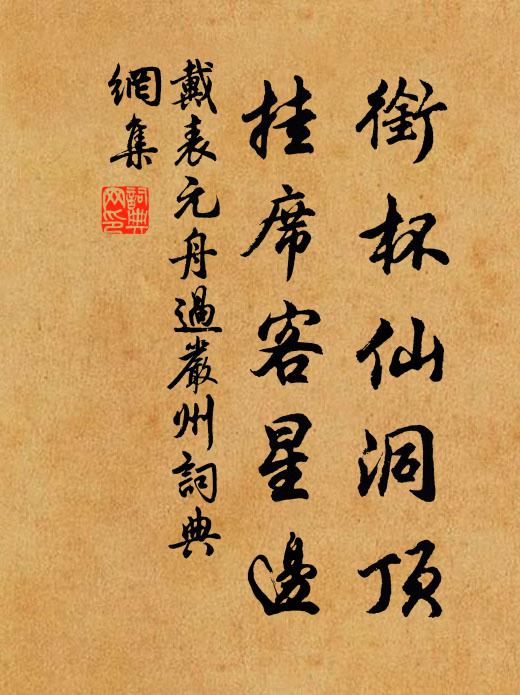 銜杯仙洞頂
挂席客星邊
戴表元舟過嚴州詞典
網集
詞典
网印